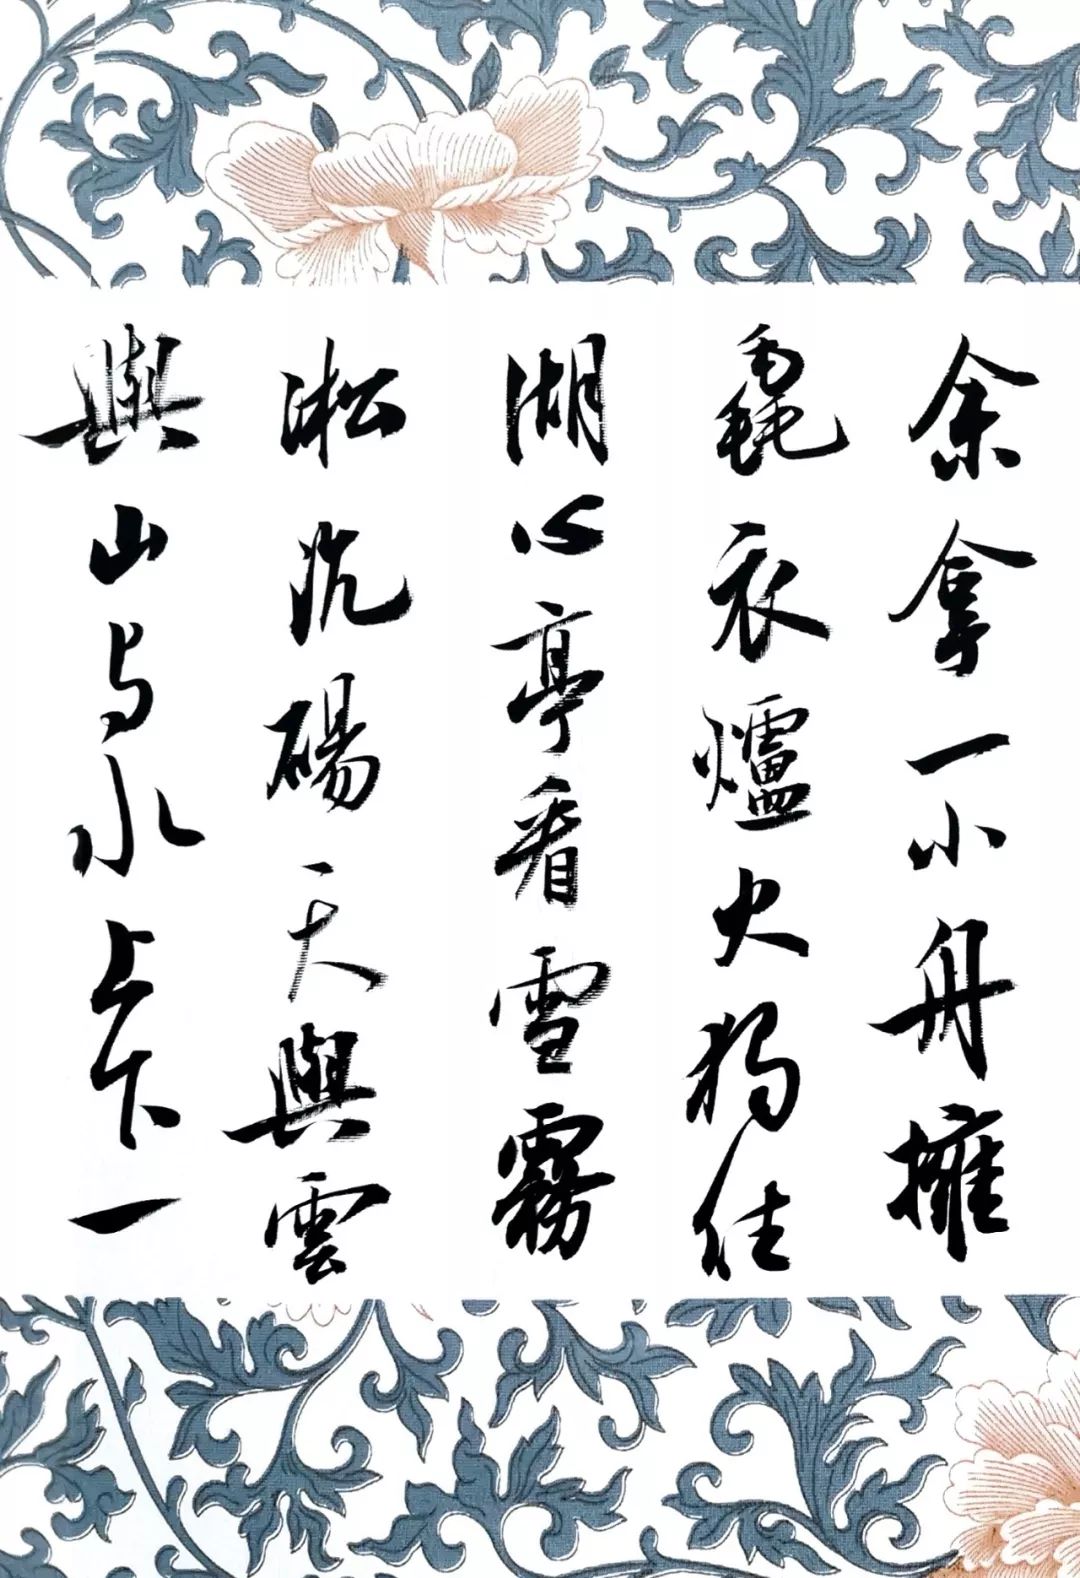 余拿一小舟擁
毳衣爐火独往
湖心亭看雪霧
淞沆碭天與雲
與山与水上下一